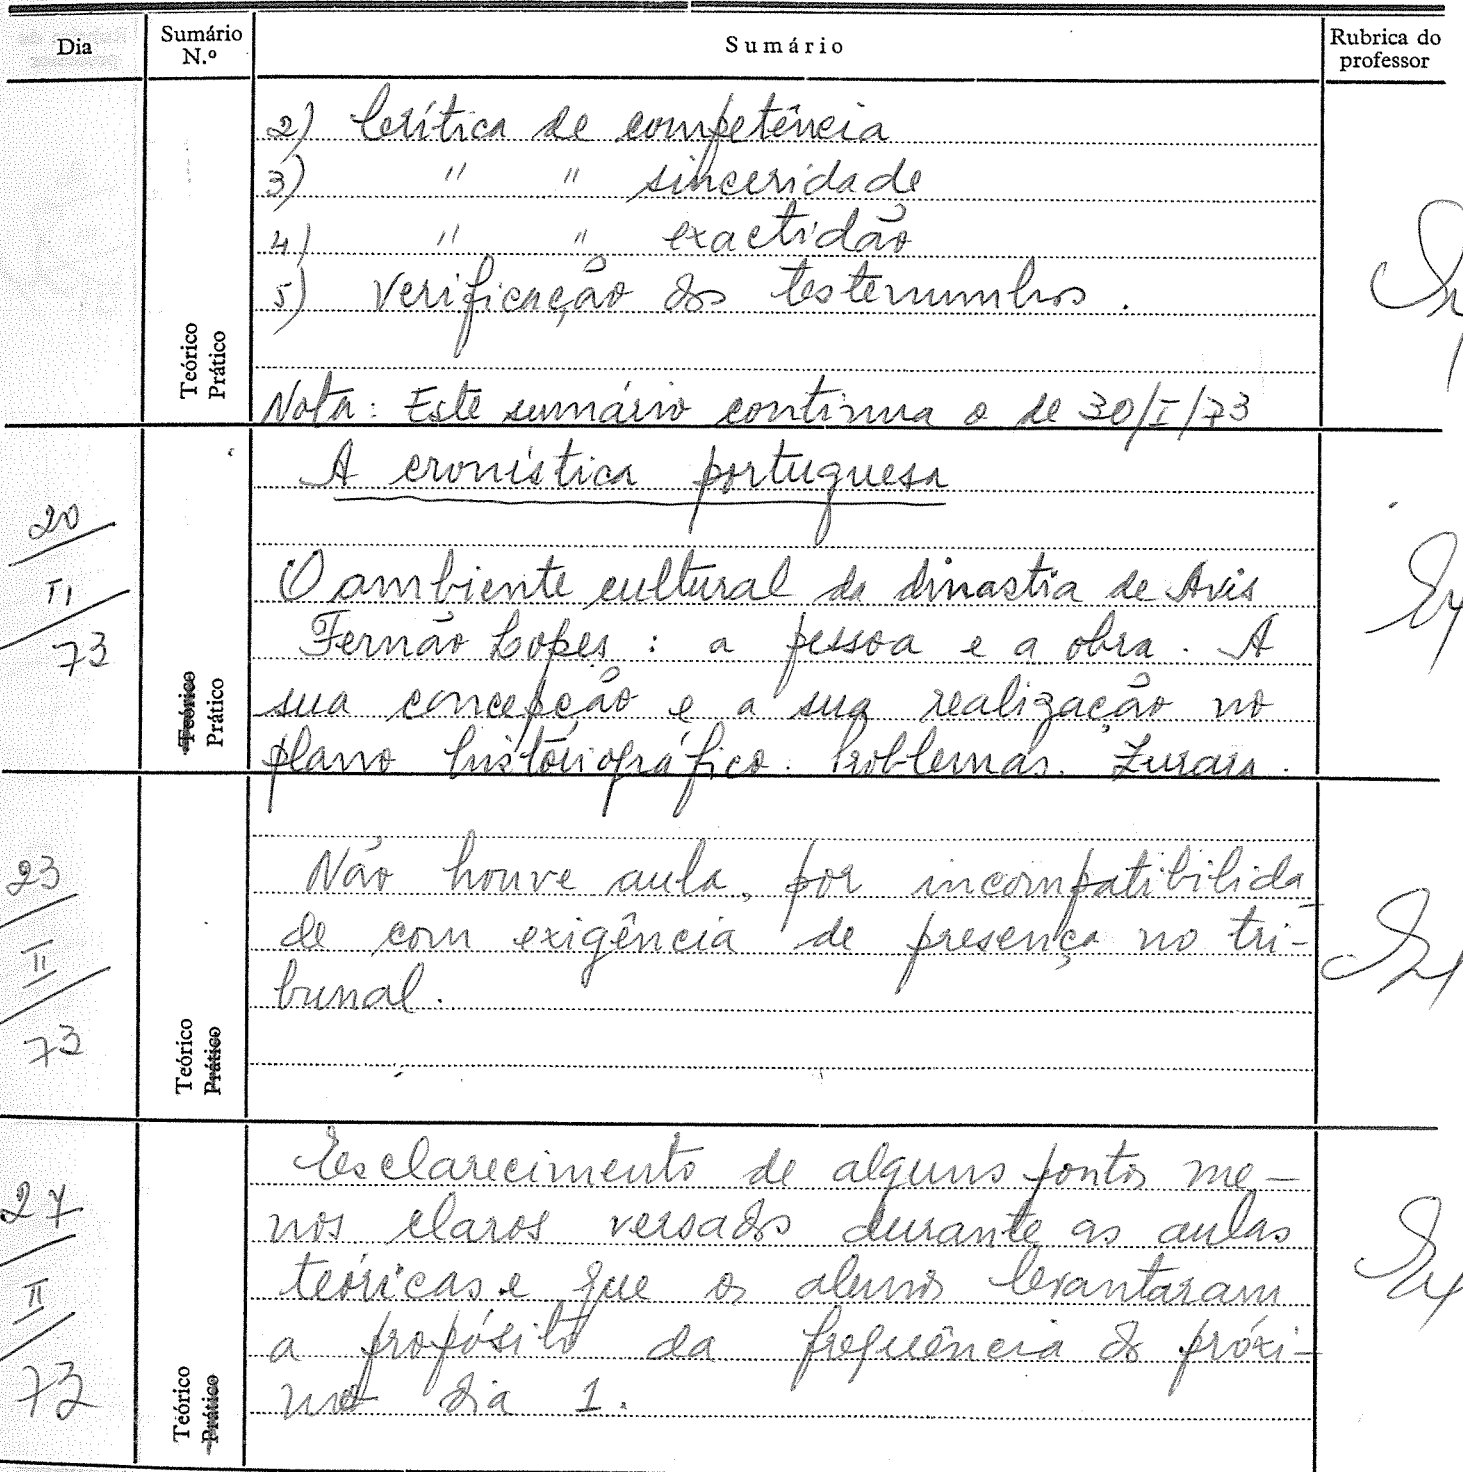 Dia Sumário N.º Sumário Rubrica do professor
2) Crítica de competência
3) " " sinceridade
4) " " exactidão
5) Verificação dos testemunhos.
Teórico
Prático
Nota: Este sumário continua o de 30/I/73
A cronística portuguesa
20
II
73
O ambiente cultural da dinastia de Avis
Fernão Lopes: a pessoa e a obra. A
sua concepção e a sua realização no
plano historiográfico. Problemas. Zurara.
Teórico
Prático
23
II
73
Não houve aula, por incompatibilida
de com exigência de presença no tri-
bunal.
Teórico
Prático
27
II
73
Esclarecimento de alguns pontos me-
nos claros versados durante as aulas
teóricas e que os alunos levantaram
a propósito da frequência do próxi-
mo dia 1.
Teórico
Prático